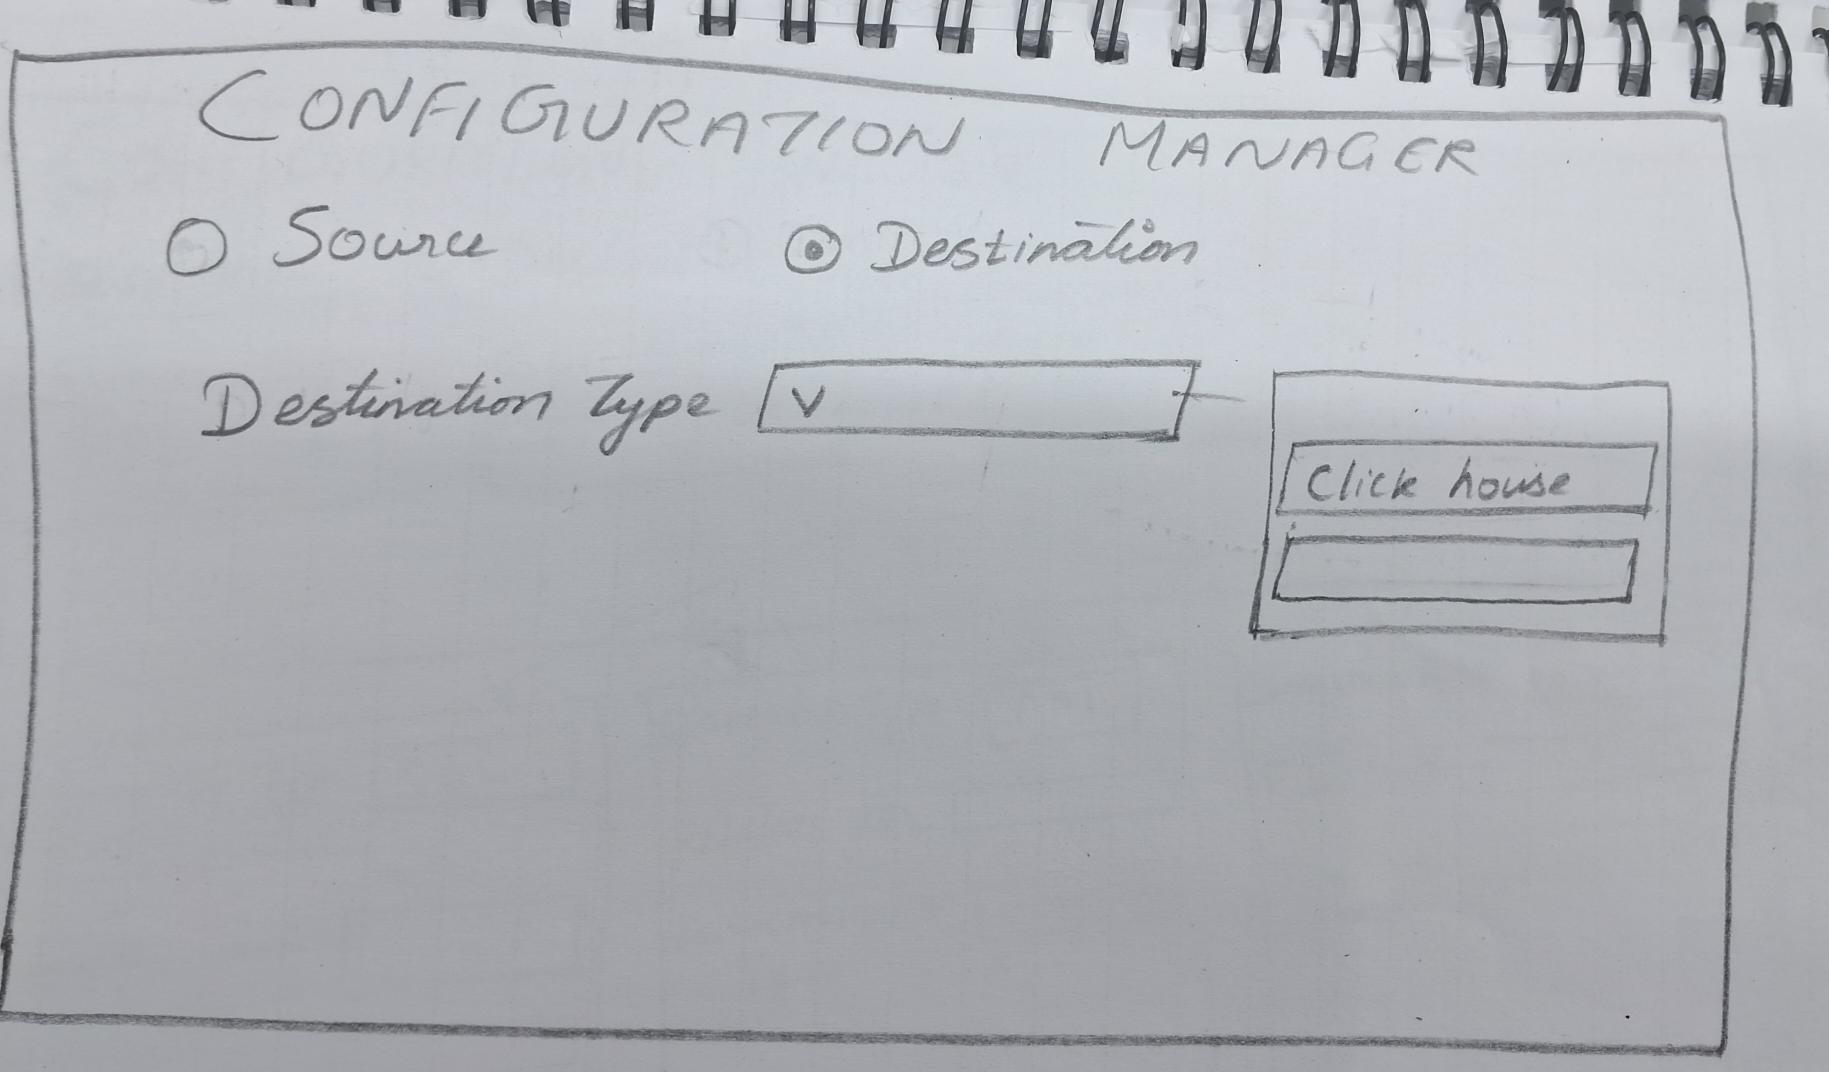 CONFIGURATION MANAGER
Source Destination
Destination Type
Click house